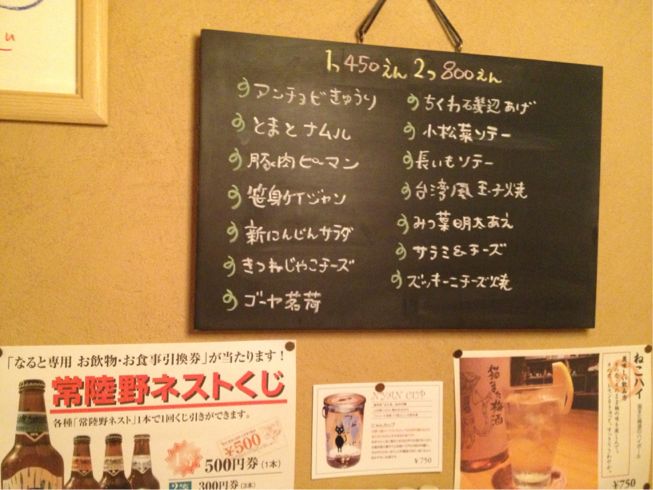 1つ450えん 2つ800えん
アンチョビきゅうり
とまとナムル
豚肉ピーマン
笹身ケイジャン
新にんじんサラダ
きつねじゃこチーズ
ゴーヤ茗荷
ちくわ磯辺あげ
小松菜ソテー
長いもソテー
台湾風玉子焼
みつ葉明太あえ
サラミ&チーズ
ズッキーニチーズ焼
「なると専用 お飲物・お食事引換券」が当たります!
常陸野ネストくじ
各種「常陸野ネスト」1本で1回くじ引きができます。
¥500
500円券(1本)
300円券(3本)
NYAN CUP
¥750
ねこハイ
¥750